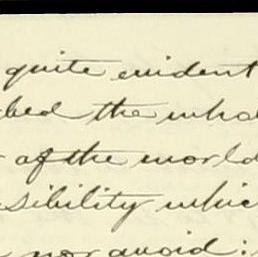 quite evident
bed the whol
of the world
sibility whic
nor avoid: